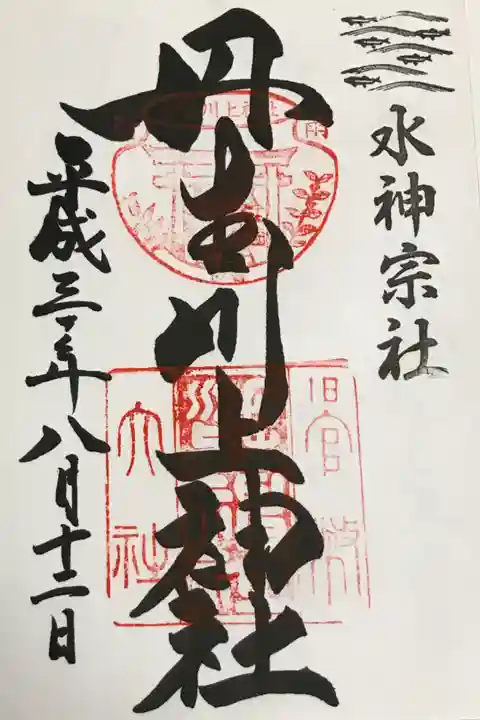 水神宗社
丹生川上神社
平成三十年八月十二日
川上神社
旧官幣
大社